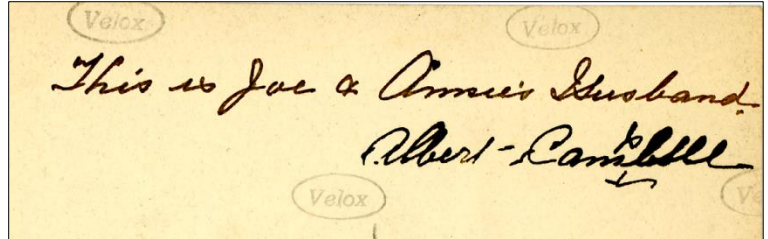 Velox Velox
This is Joe & Annie's Husband.
Albert - Campbell
Velox Ve